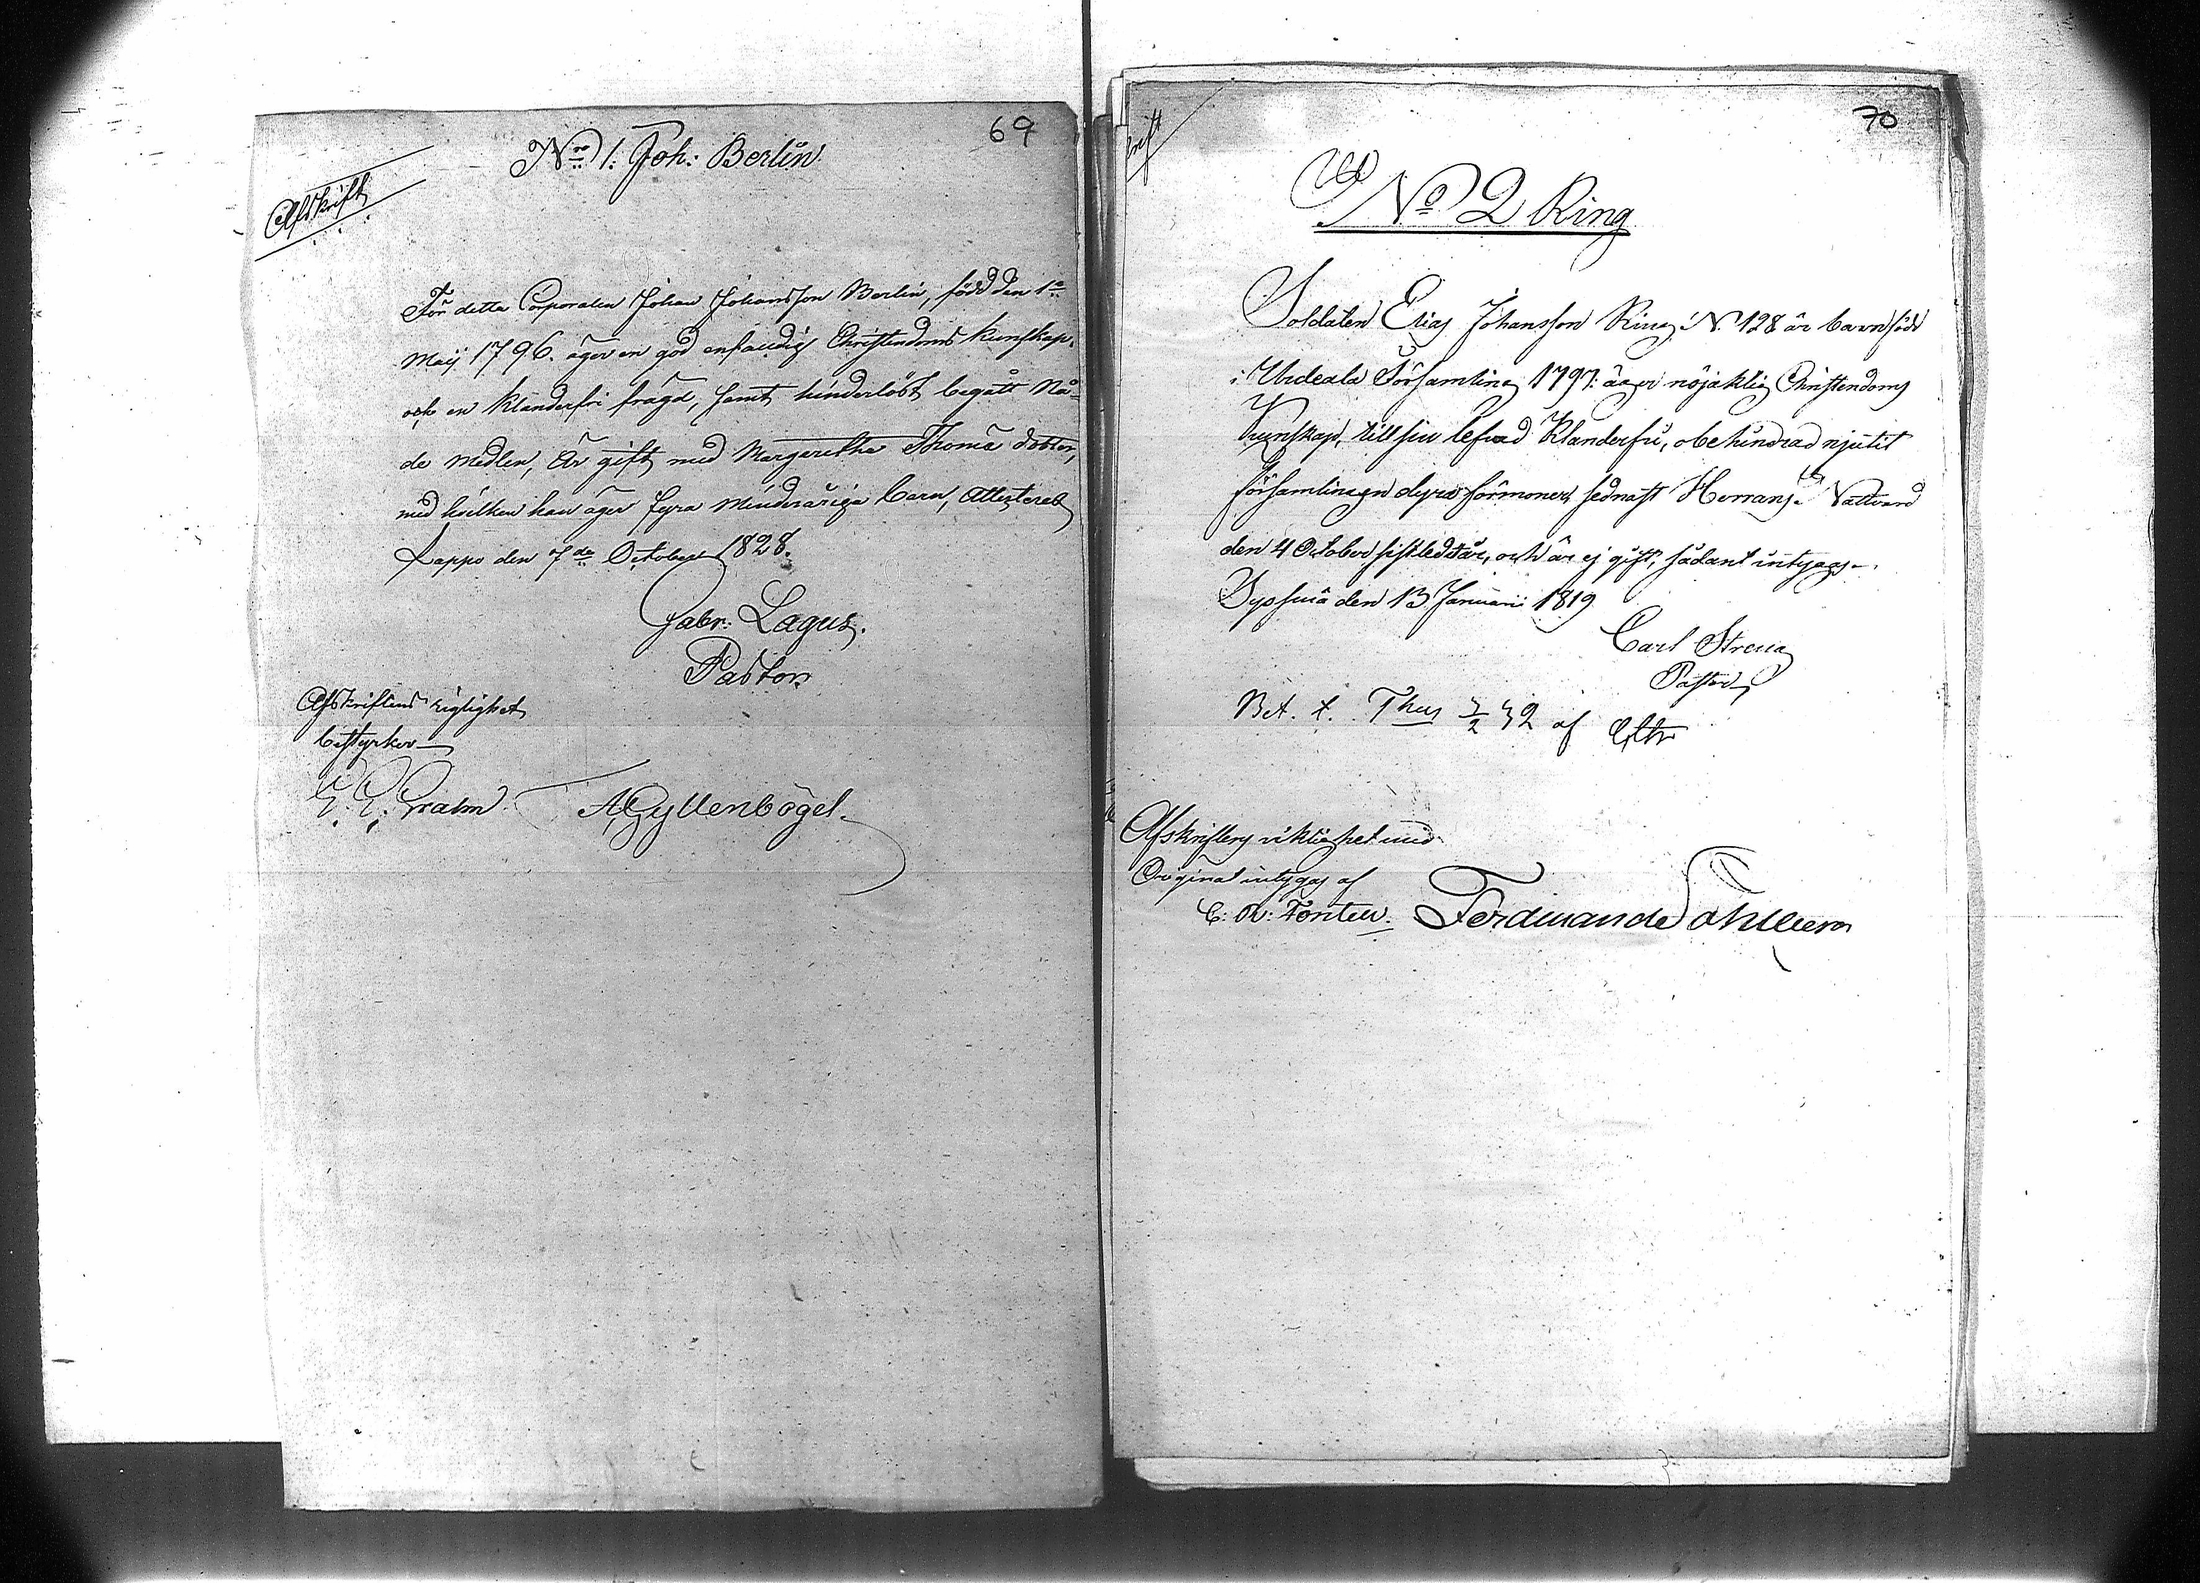 69
No 1. Joh: Berlin
Afskrift
För detta Corporalen Johan Johansson Berlin, född den 1a
Maij 1796. äger en god enfaldig Christendoms kunskap,
och en klanderfri frägd, samt hinderlöst begått Nå-
de medlen, Är gift med Margaretha Thomä dotter,
med hvilken han äger fyra Minderåriga barn, Attesteras
Lappo den 7de October 1828.
Gabr: Lagus.
Pastor.
Afskriftens rigtighet
bestyrker
G. E. Gralm A Gyllenbögel.
70
rift
No 2 Ring
Soldaten Elias Johansson Ring N. 128 är barnfödd
i Urdeala Församling 1797: äger nöjaktig Christendoms
Kunskap, till sin lefnad Klanderfri, obehindrad njutit
församlingen dyra förmoner, sednast Herrans Nattvard
den 4 October sistledit år, och är ej gift, sådant intygas.
Sysmä den 13 Januarii 1819
Carl Streng
Pastor
Bet. t. 32 af
Afskriftens riktighet med
Original intygas af
C: R: Forteli. Ferdinand